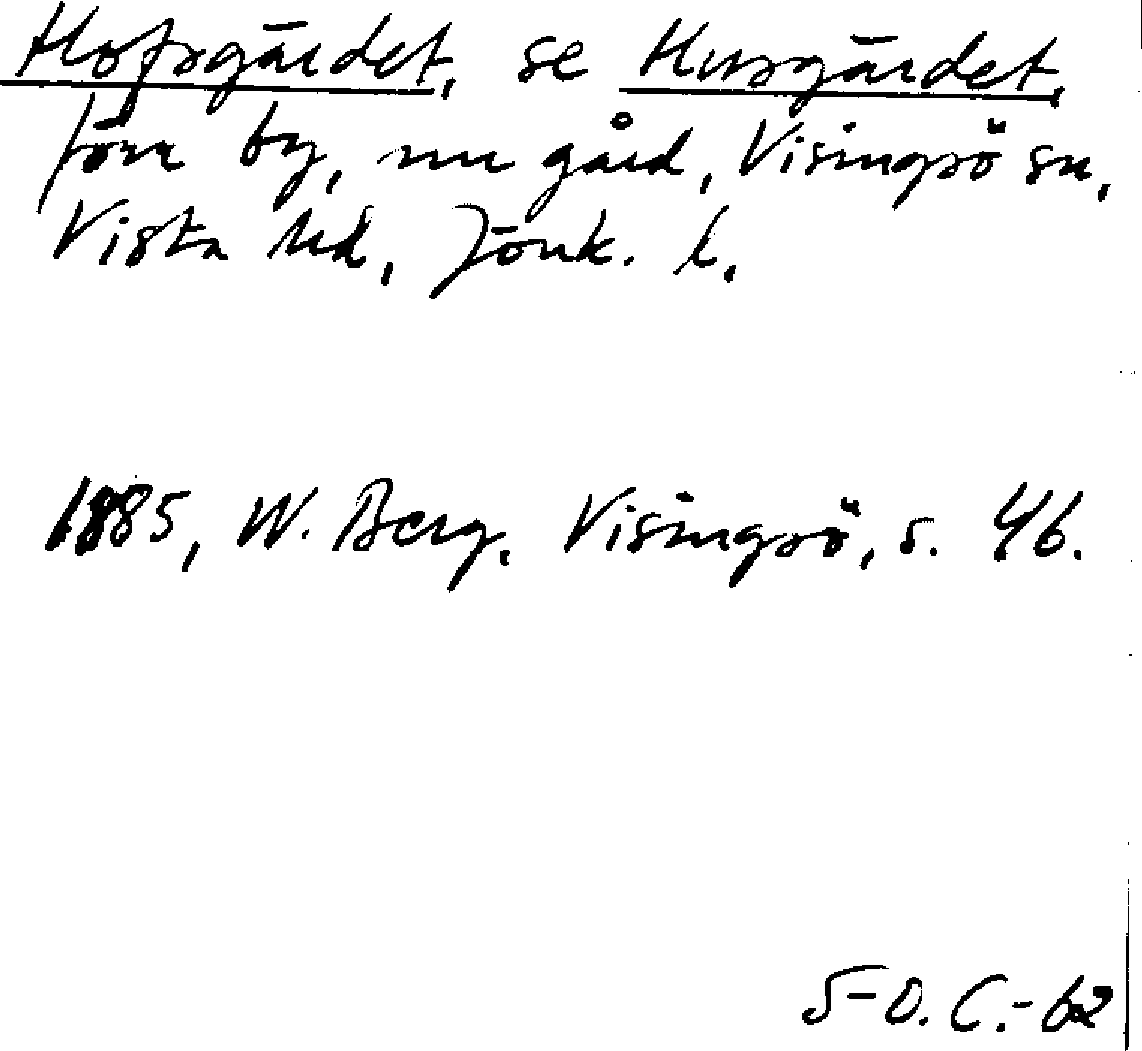 Hofsgärdet, se Husgärdet,
förr by, nu gård, Visingsö sn,
Vista hd, Jönk. l.
1885, W. Berg. Visingsö, s. 46.
S-O. C.-62